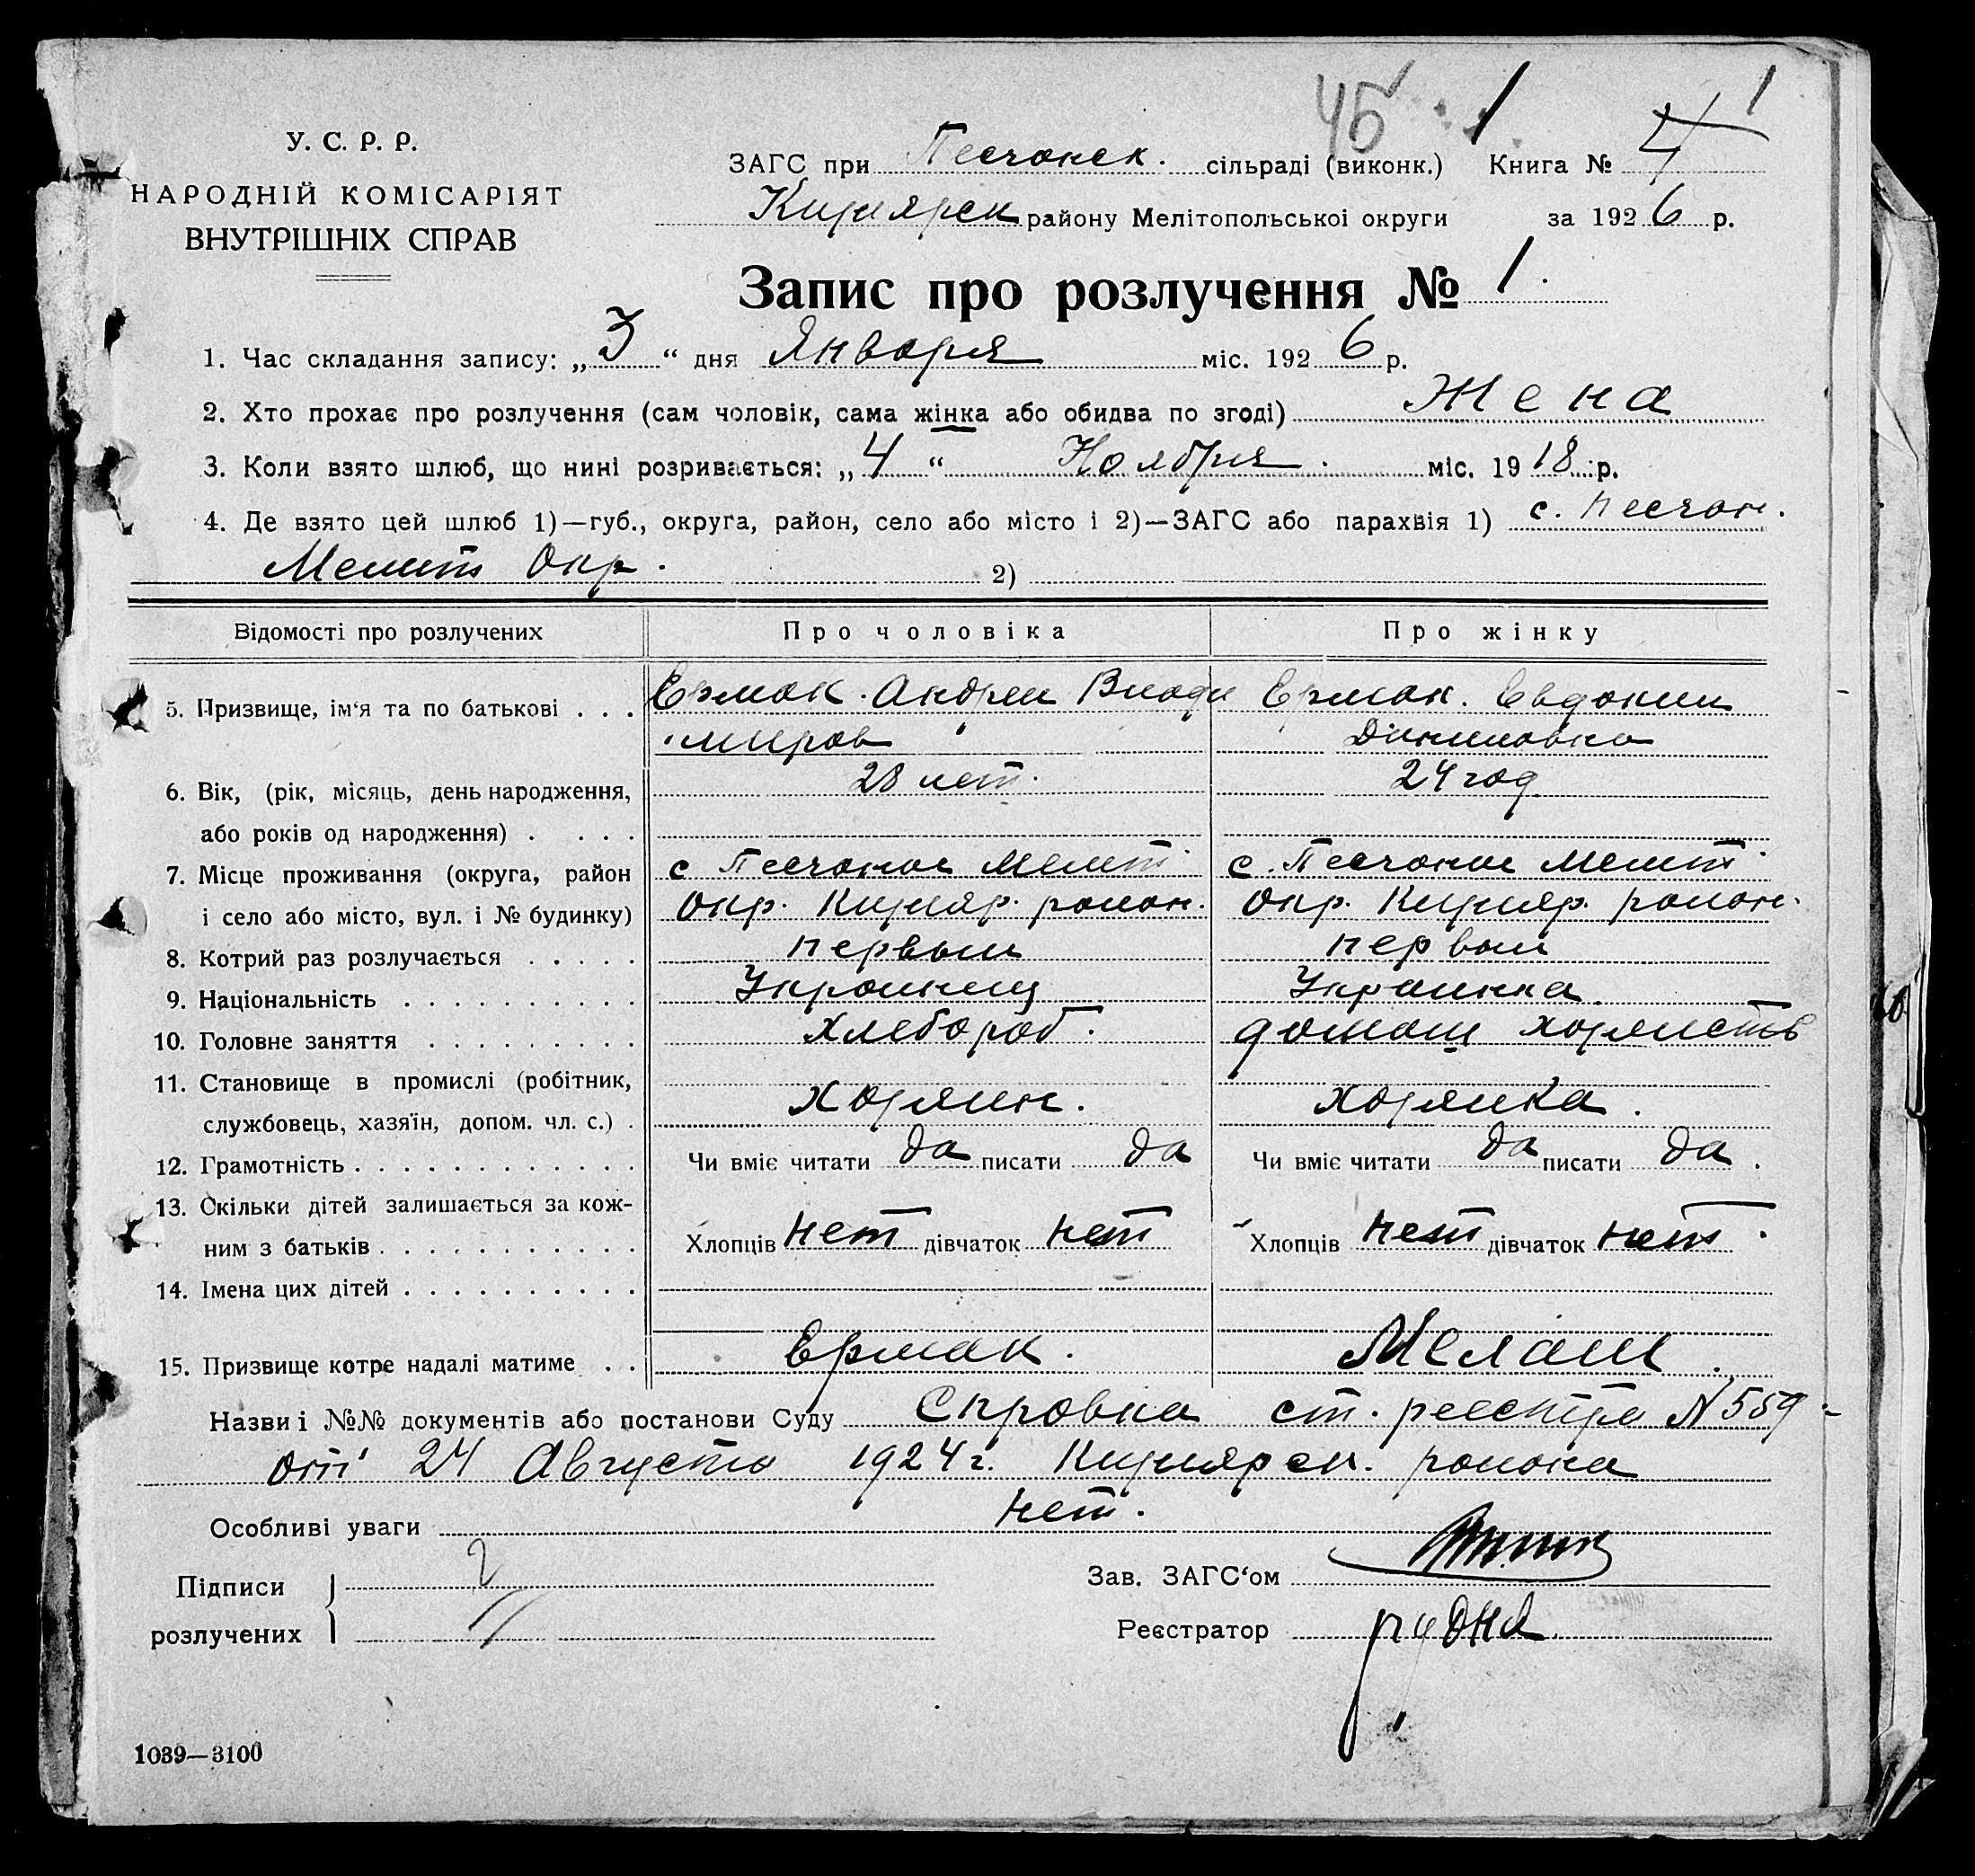 45 1 1
У. С. Р. Р.
НАРОДНІЙ КОМІСАРІЯТ
ВНУТРІШНІХ СПРАВ
ЗАГС при Песчанск. сільраді (виконк.) Книга № 4
Кизиярск району Мелітопольської округи за 1926 р.
Запис про розлучення № 1.
1. Час складання запису: „3“ дня Января міс. 1926 р.
2. Хто прохає про розлучення (сам чоловік, сама жінка або обидва по згоді) Жена
3. Коли взято шлюб, що нині розривається: „4“ Ноября. міс. 1918 р.
4. Де взято цей шлюб 1)—губ., округа, район, село або місто і 2)—ЗАГС або парахвія 1) с. Песчан.
Мелит Окр. 2)
Відомості про розлучених Про чоловіка Про жінку
5. Призвище, ім'я та по батькові . . . Ермак. Андрей Влади Ермак. Евдокии
миров Даниловна
6. Вік, (рік, місяць, день народження, 28 лет. 24 год
або років од народження) . . . .
7. Місце проживання (округа, район с Песчаное Мелит. с. Песчаное Мелит.
і село або місто, вул. і № будинку) Окр. Кизияр. район. Окр. Кизияр. район.
8. Котрий раз розлучається . . . . . первый первый
9. Національність . . . . . . . . . . Украинец Украинка
10. Головне заняття . . . . . . . . . Хлебороб. домаш хозяиств
11. Становище в промислі (робітник,
службовець, хазяїн, допом. чл. с.) . Хозяин. хозяика.
12. Грамотність . . . . . . . . . . . . Чи вміє читати да писати да Чи вміє читати да писати да.
13. Скільки дітей залишається за кож-
ним з батьків . . . . . . . . . . . Хлопців нет дівчаток нет Хлопців нет дівчаток нет.
14. Імена цих дітей . . . . . . . . . .
15. Призвище котре надалі матиме . . Ермак. Мелаш.
Назви і №№ документів або постанови Суду Справка ст. реестра N 559
от 24 Августа 1924 г. Кизиярск. района
Особливі уваги нет.
Підписи
розлучених
Зав. ЗАГС'ом
Реєстратор
1039—3100